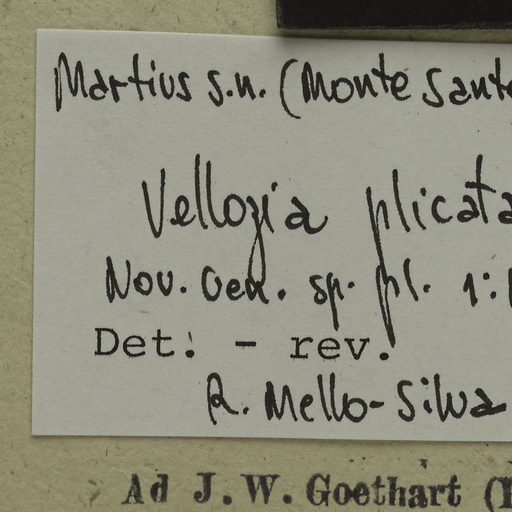 Martius s.n. (Monte Sant
Vellozia plicata
Nov. Gen. sp. pl. 1:
Det. - rev.
R. Mello-Silva
Ad J. W. Goethart (